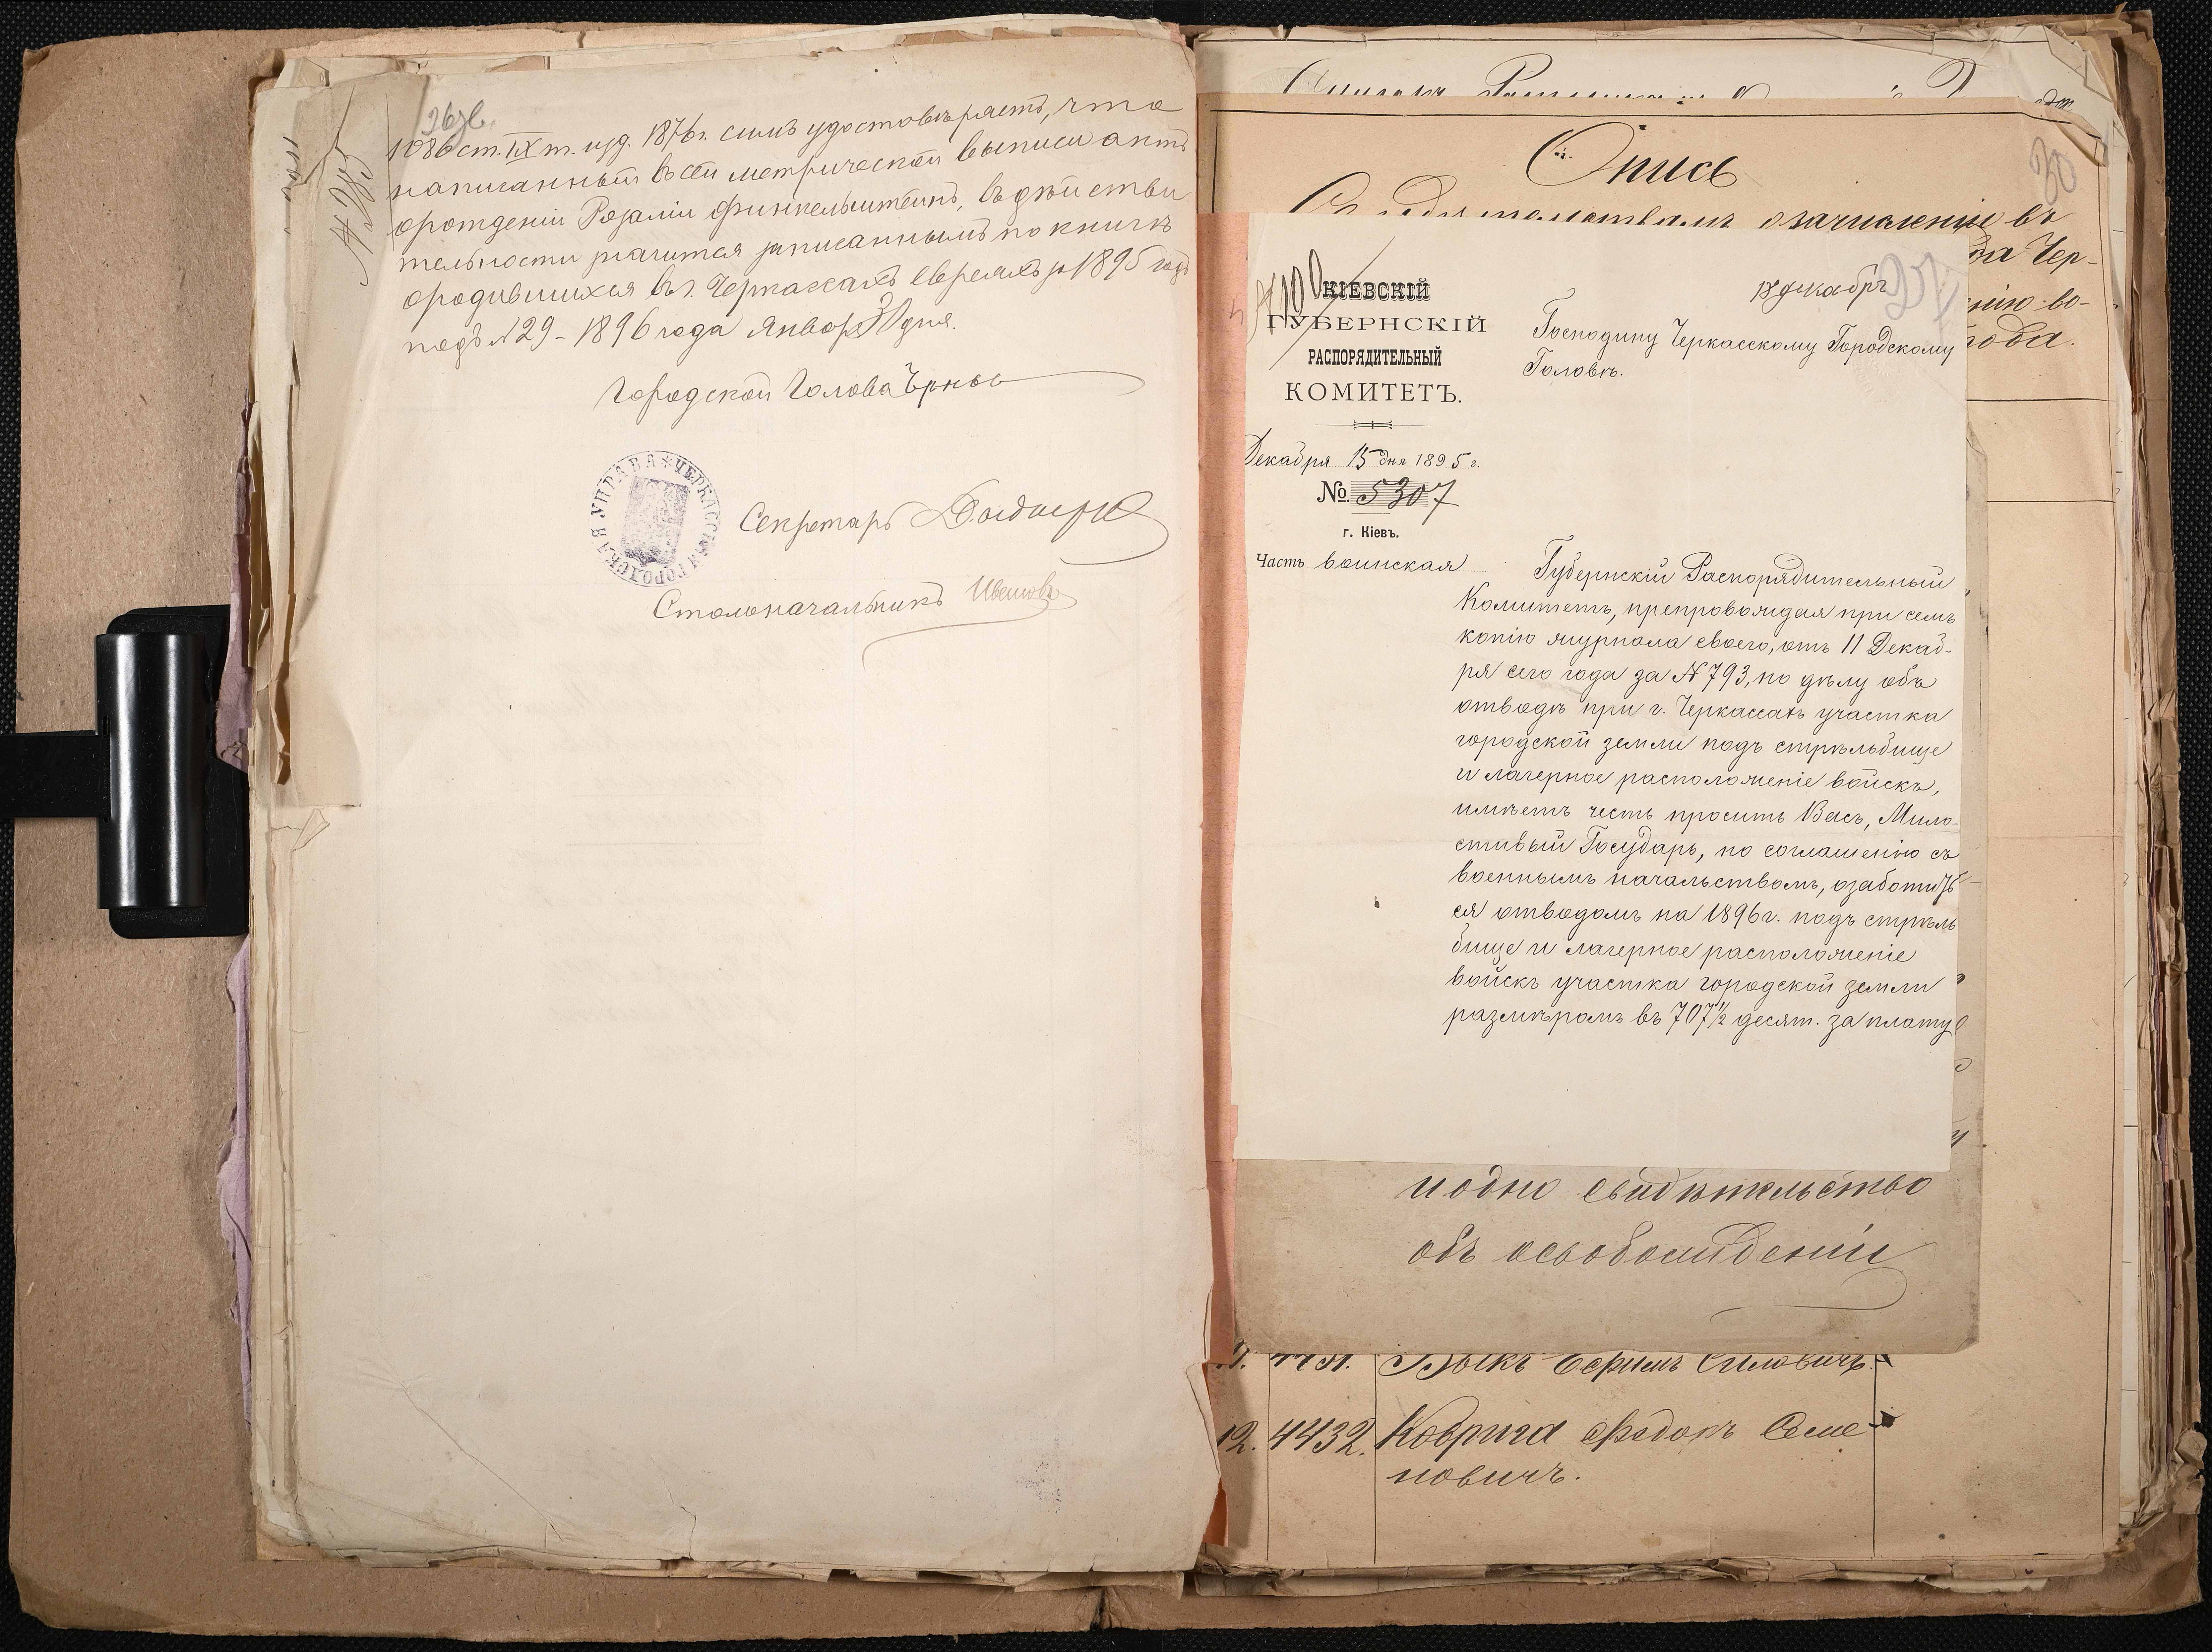 26 зв.
1086 ст. IX т. изд. 1876 г. симъ удостовѣряетъ, что
написанный въ сей метрической выписи актъ
о рожденіи Розаліи Финкельштейнъ, въ дѣйстви
тельности значится записаннымъ по книгѣ
о родившихся въ г. Черкассахъ евреяхъ за 1895 годъ
подъ № 29 - 1896 года Января 30 дня.
Городской Голова
Секретарь
Столоначальникъ
ЧЕРКАССКАЯ ГОРОДСКАЯ УПРАВА
Опись
30
о зачисленіи въ
да Чер-
нію во-
КІЕВСКІЙ
ГУБЕРНСКІЙ
РАСПОРЯДИТЕЛЬНЫЙ
КОМИТЕТЪ.
Декабря 15 дня 1895 г.
№. 5307
г. Кіевъ.
Часть воинская
27
Господину Черкасскому Городскому
Головѣ.
Губернскій Распорядительный
Комитетъ, препровождая при семъ
копію журнала своего, отъ 11 Декаб-
ря сего года за № 793, по дѣлу объ
отводѣ при г. Черкассахъ участка
городской земли подъ стрѣльбище
и лагерное расположеніе войскъ,
имѣетъ честь просить Васъ, Мило-
стивый Государь, по соглашенію съ
военнымъ начальствомъ, озаботить
ся отводомъ на 1896 г. подъ стрѣль
бище и лагерное расположеніе
войскъ участка городской земли
размѣромъ въ 707 1/2 десят. за плату
и одно свидѣтельство
объ освобожденіи
4431. Быкъ Ефимъ Силовичъ.
12. 4432. Коврига Федоръ Семе
новичъ.